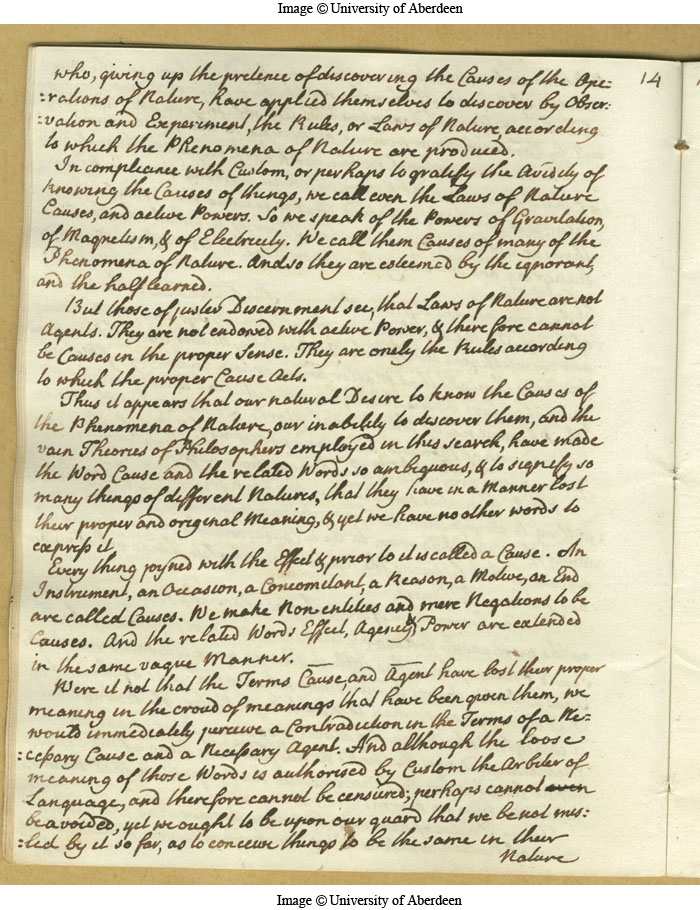 Image © University of Aberdeen
14
who, giving up the pretence of discovering the Causes of the Ope:
:rations of Nature, have applied themselves to discover by Obser:
:vation and Experiment, the Rules, or Laws of Nature, according
to which the Phenomena of Nature are produced.
In compliance with Custom, or perhaps to gratify the Avidity of
knowing the Causes of things, we call even the Laws of Nature
Causes, and active Powers. So we speak of the Powers of Gravitation,
of Magnetism, & of Electricity. We call them Causes of many of the
Phenomena of Nature. And so they are esteemed by the ignorant,
and the half learned.
But those of juster Discernment see, that Laws of Nature are not
Agents. They are not endowed with active Power, & therefore cannot
be Causes in the proper Sense. They are onely the Rules according
to which the proper Cause Acts.
Thus it appears that our natural Desire to know the Causes of
the Phenomena of Nature, our inability to discover them, and the
vain Theories of Philosophers employed in this search, have made
the Word Cause and the related Words so ambiguous, & to signify so
many things of different Natures, that they have in a Manner lost
their proper and original Meaning, & yet we have no other words to
express it
Every thing joyned with the Effect & prior to it is called a Cause. An
Instrument, an Occasion, a Concomitant, a Reason, a Motive, an End
are called Causes. We make Non entities and mere Negations to be
Causes. And the related Words Effect, Agency, Power are extended
in the same vague Manner.
Were it not that the Terms Cause, and Agent have lost their proper
meaning in the croud of meanings that have been given them, we
would immediately perceive a Contradiction in the Terms of a Ne:
:cessary Cause and a Necessary Agent. And although the loose
meaning of those Words is authorised by Custom the Arbiter of
Language, and therefore cannot be censured; perhaps cannot even
be avoided, yet we ought to be upon our guard that we be not mis:
:led by it so far, as to conceive things to be the same in their
Nature
Image © University of Aberdeen